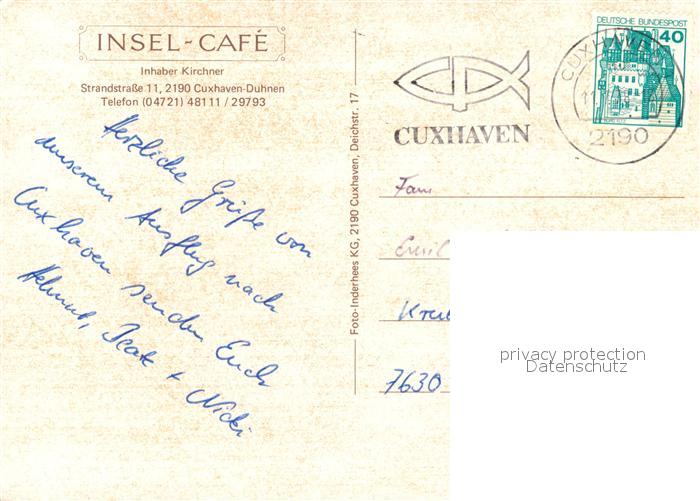 INSEL-CAFÉ
Inhaber Kirchner
Strandstraße 11, 2190 Cuxhaven-Duhnen
Telefon (04721) 48111 / 29793
Herzliche Grüße von
unserem Ausflug nach
Cuxhaven senden Euch
Helmut, Beate + Nicki
Foto-Inderhees KG, 2190 Cuxhaven, Deichstr. 17
CUXHAVEN
DEUTSCHE BUNDESPOST
40
CUXHAVEN
2190
Fam
Emil
7630
privacy protection
Datenschutz